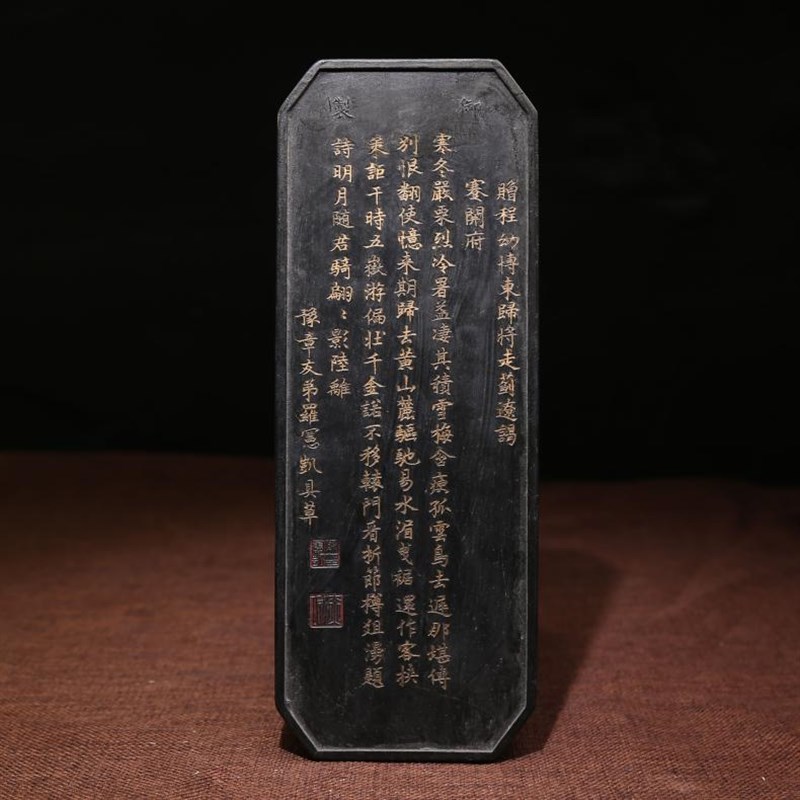 御製
贈程幼博東歸將走薊遼謁
蹇開府
寒冬嚴栗烈冷署益淒其積雪梅含瘐孤雲鳥去遲那堪傅
別恨翻使憶來期歸去黃山麓驅馳易水湄曳裾還作客挾
策詎干時五嶽游偏壯千金諾不移轅門看折節樽俎湯題
詩明月隨君騎翩〻影陸離
豫章友弟羅憲凱具草